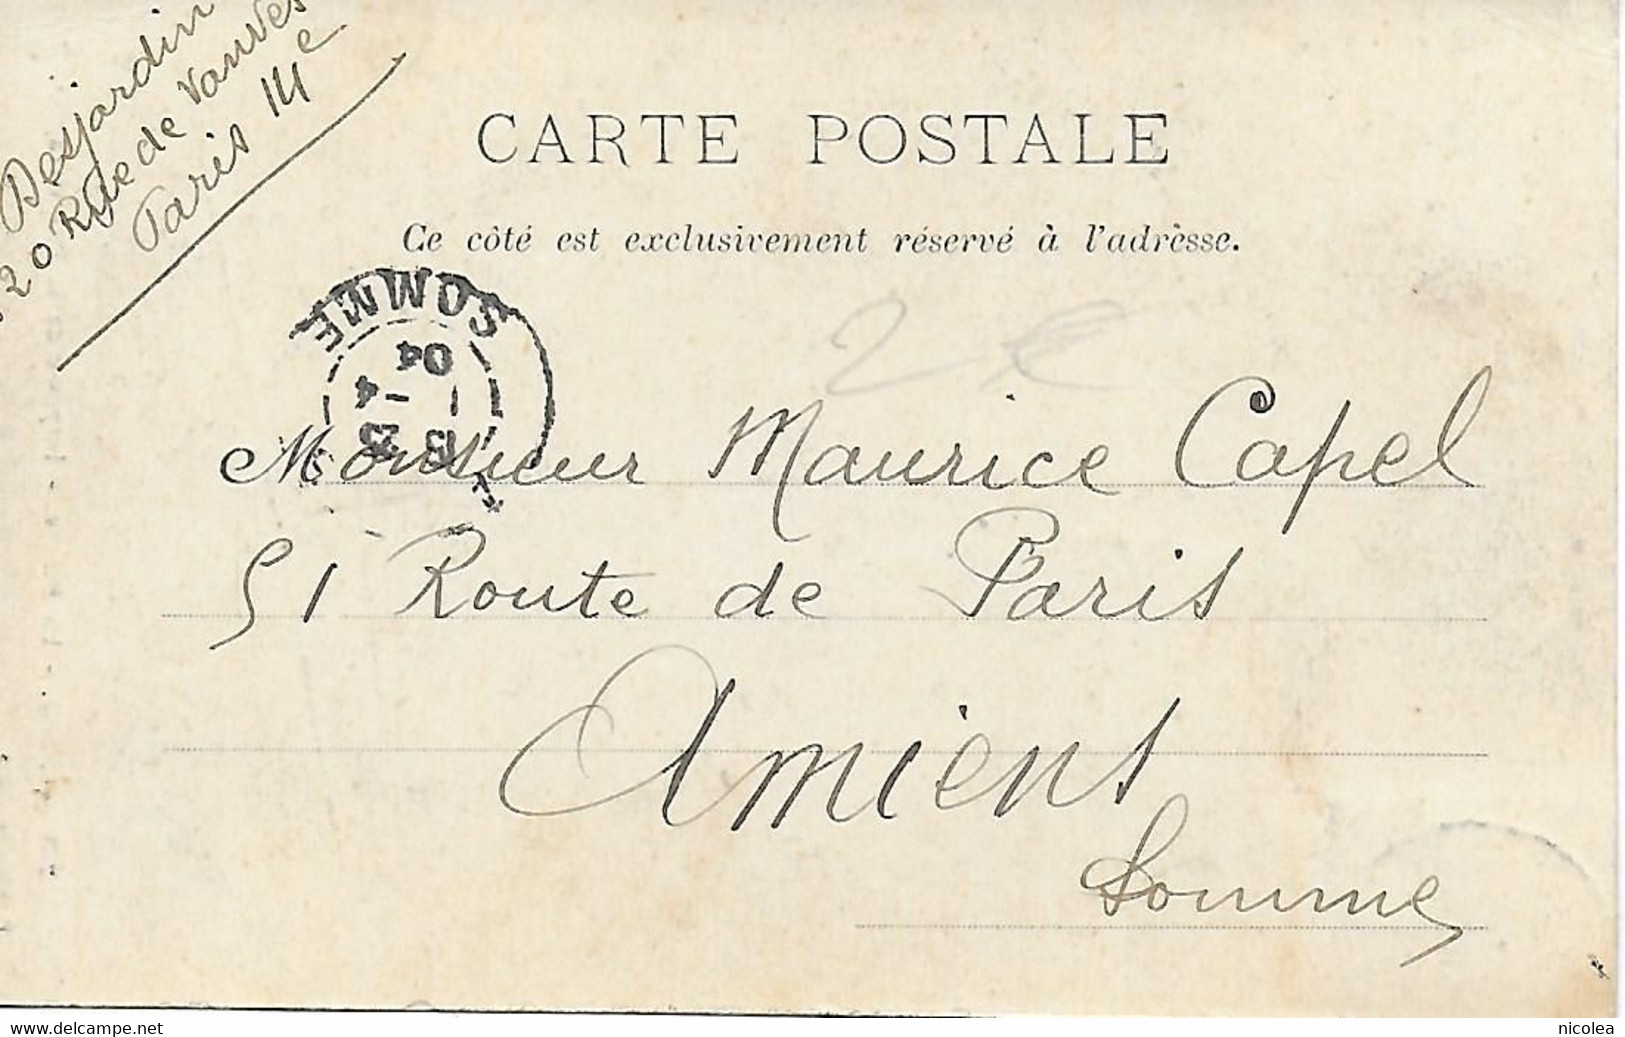 Desjardin
20 Rue de Vanves
Paris 14e
CARTE POSTALE
Ce côté est exclusivement réservé à l'adresse.
SOMME
13
23 - 4
04
2 e
Monsieur Maurice Capel
51 Route de Paris
Amiens
Somme
www.delcampe.net
nicolea